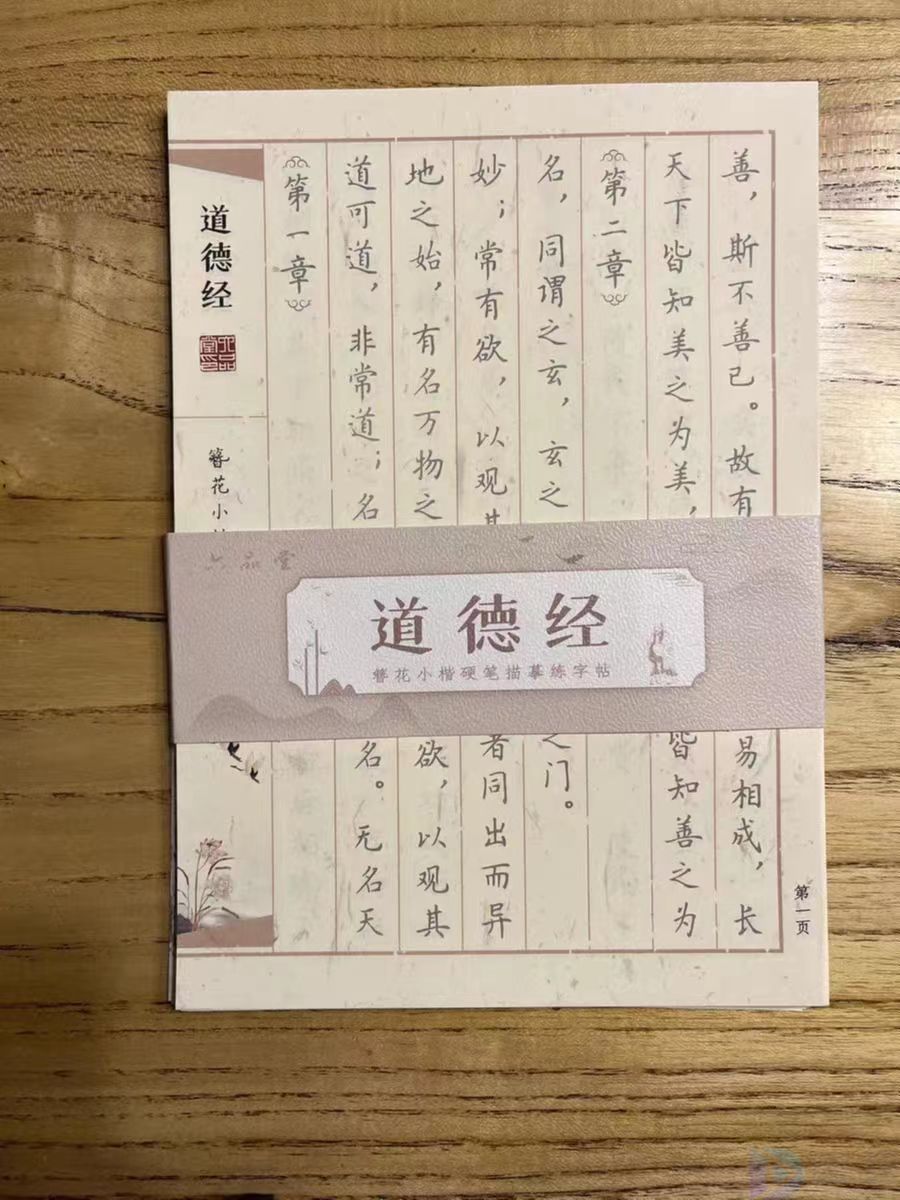 道德经
六品堂印
簪花小
第一章
道可道，非常道；名
名。无名天
地之始，有名万物之
欲，以观其
妙；常有欲，以观其
者同出而异
名，同谓之玄，玄之
之门。
第二章
天下皆知美之为美，
皆知善之为
善，斯不善已。故有
易相成，长
第一页
六品堂
道德经
簪花小楷硬笔描摹练字帖